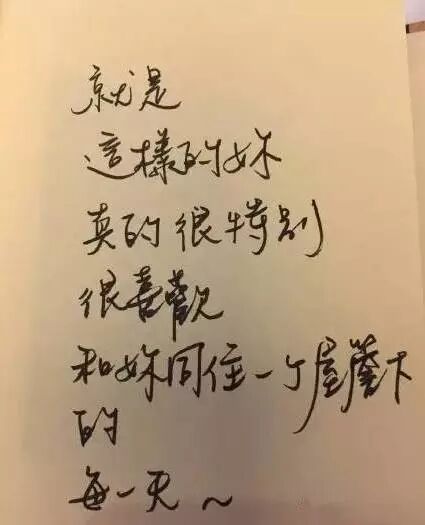 就是
這樣的妳
真的很特别
很喜歡
和妳同住一个屋簷下
的
每一天~